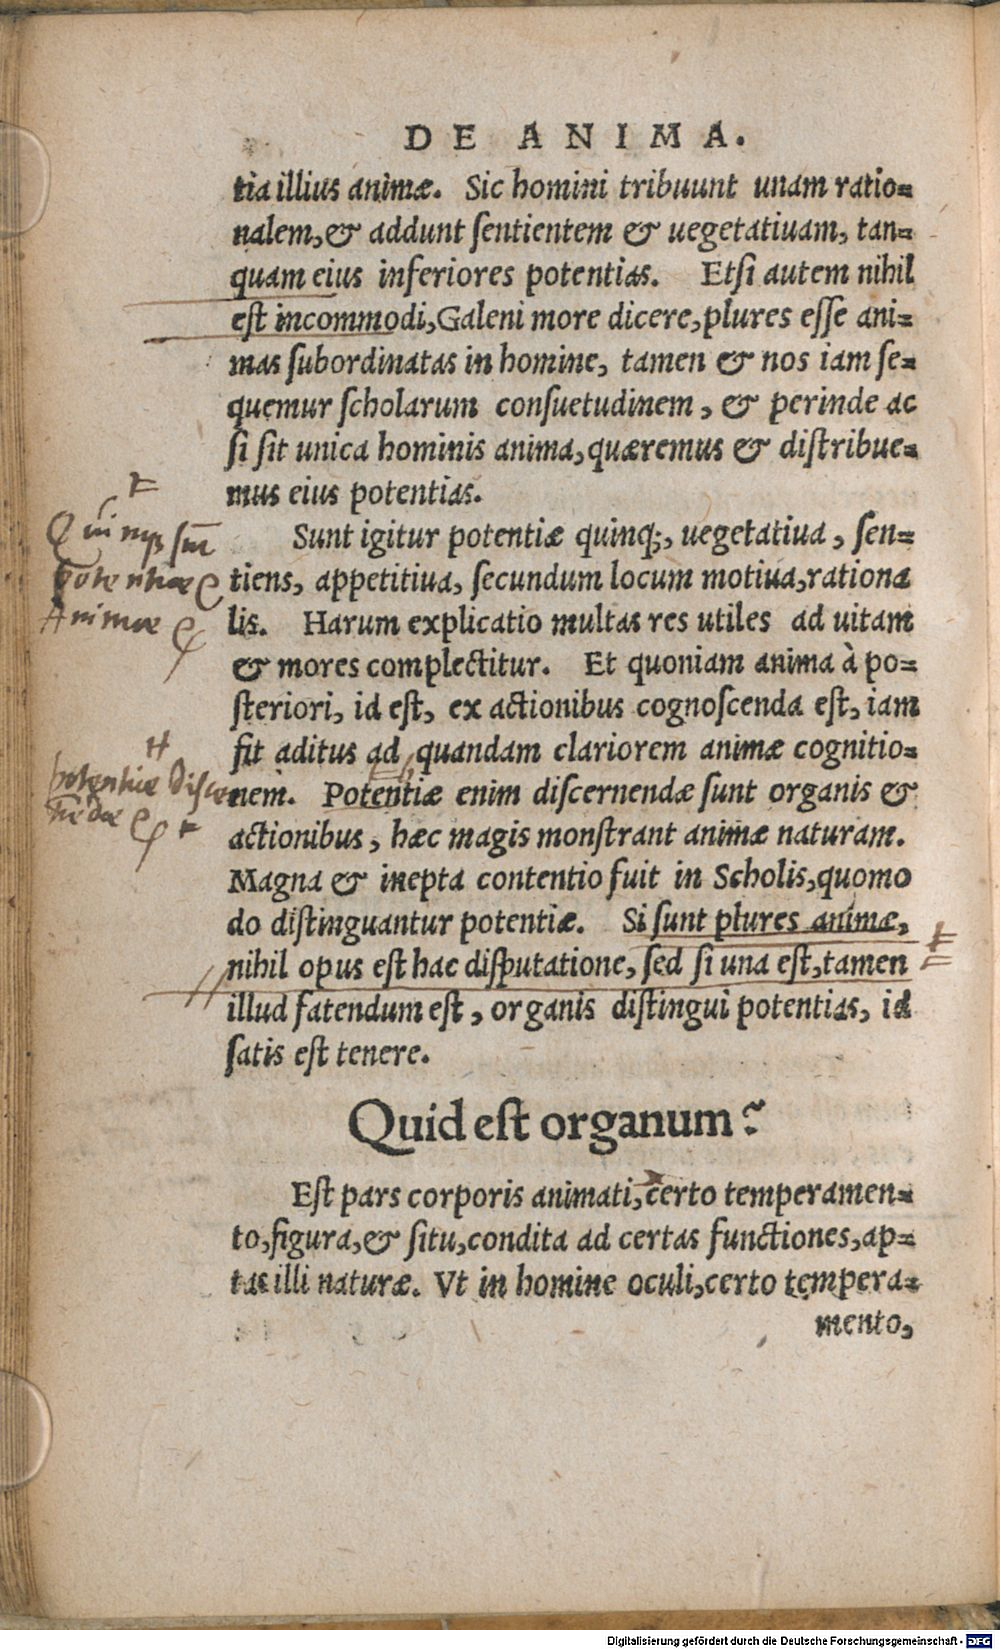 DE ANIMA.
tia illius animæ. Sic homini tribuunt unam ratio=
nalem, & addunt sentientem & uegetatiuam, tan=
quam eius inferiores potentias. Etsi autem nihil
est incommodi, Galeni more dicere, plures esse ani=
mas subordinatas in homine, tamen & nos iam se=
quemur scholarum consuetudinem, & perinde ac
si sit unica hominis anima, quæremus & distribue=
mus eius potentias.
Quinqꝫ sūt
potentiae
Animae
Sunt igitur potentiæ quinqꝫ, uegetatiua, sen=
tiens, appetitiua, secundum locum motiua, rationa
lis. Harum explicatio multas res utiles ad uitam
& mores complectitur. Et quoniam anima à po=
steriori, id est, ex actionibus cognoscenda est, iam
fit aditus ad quandam clariorem animæ cognitio=
nem. Potentiæ enim discernendæ sunt organis &
actionibus, hæc magis monstrant animæ naturam.
potentiae Discer
nēdae
Magna & inepta contentio fuit in Scholis, quomo
do distinguantur potentiæ. Si sunt plures animæ,
nihil opus est hac disputatione, sed si una est, tamen
illud fatendum est, organis distingui potentias, id
satis est tenere.
Quid est organum?
Est pars corporis animati, certo temperamen=
to, figura, & situ, condita ad certas functiones, ap=
tas illi naturæ. Vt in homine oculi, certo tempera=
mento,
Digitalisierung gefördert durch die Deutsche Forschungsgemeinschaft - DFG